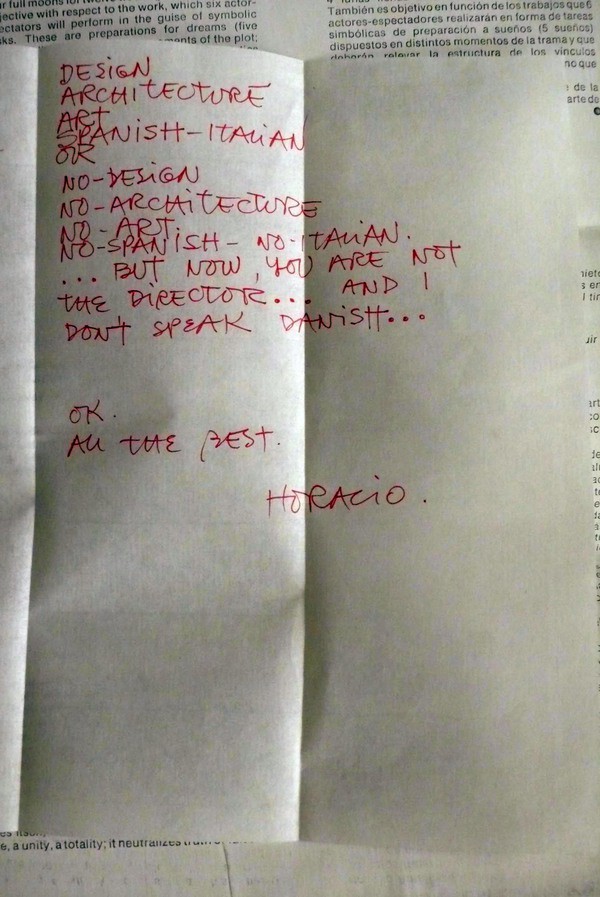 full moons for twelve
jective with respect to the work, which six actor-
ectators will perform in the guise of symbolic
ks. These are preparations for dreams (five
ments of the plot;
También es objetivo en función de los trabajos que 6
actores-espectadores realizarán en forma de tareas
simbólicas de preparación a sueños (5 sueños)
dispuestos en distintos momentos de la trama y que
deberán relevar la estructura de los vínculos
no que
de la
arte do
DESIGN
ARCHITECTURE
ART
SPANISH-ITALIAN
OR
NO-DESIGN
NO-ARCHITECTURE
NO-ART
NO-SPANISH- NO-ITALIAN.
... BUT NOW, YOU ARE NOT
THE DIRECTOR... AND I
DON'T SPEAK DANISH...
OK.
ALL THE BEST.
HORACIO.
e, a unity, a totality; it neutralizes